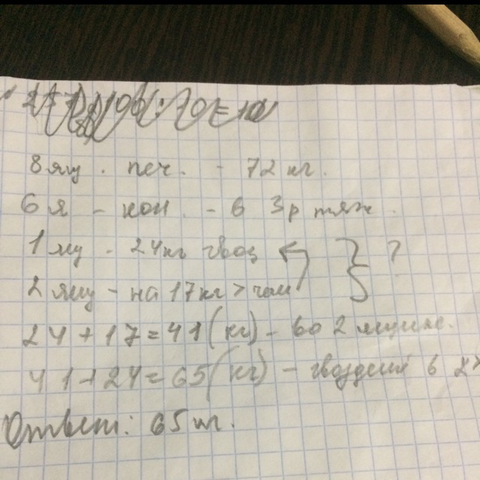 8 ящ. печ. - 72 кг.
6 я - кон. - в 3 р тяж.
1 ящ - 24 кг гвоз } ?
2 ящ - на 17 кг > чем
24 + 17 = 41 (кг) - во 2 ящике.
41 + 24 = 65 (кг) - гвоздей в 2
Ответ: 65 кг.